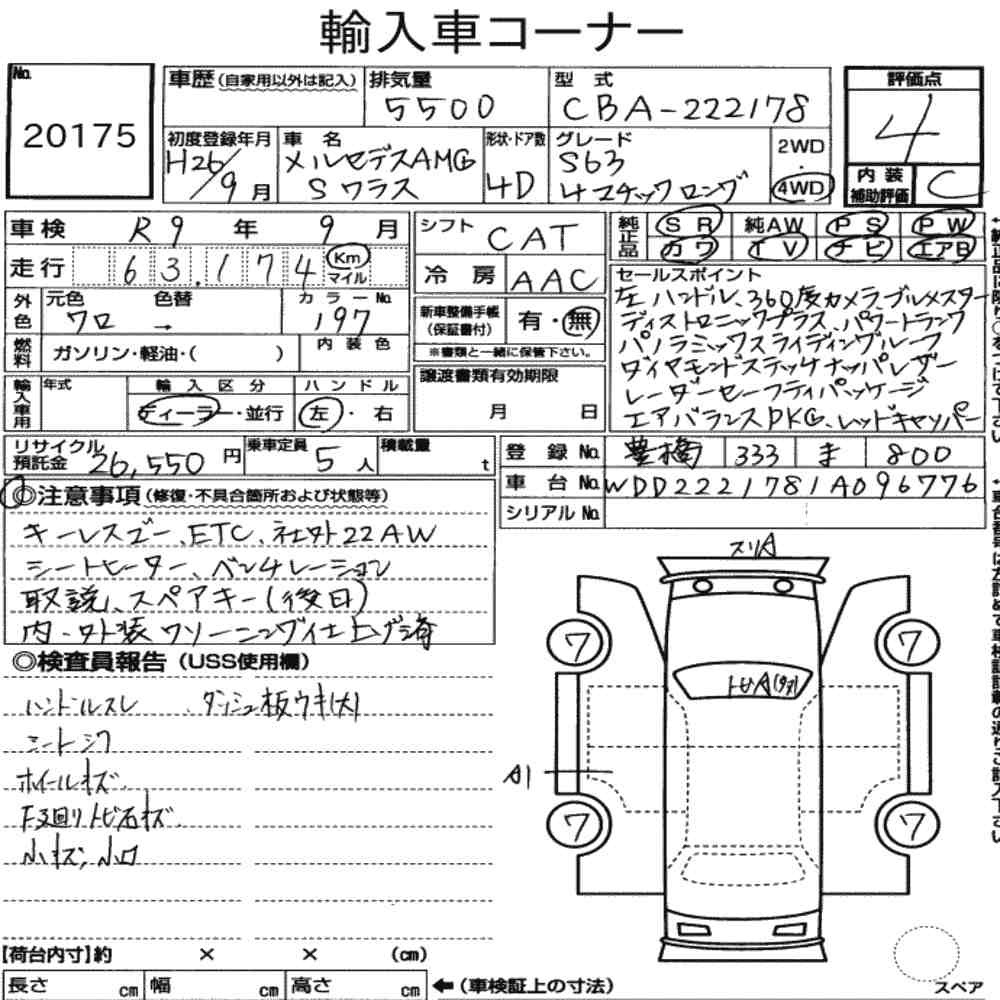 輸入車コーナー
No. 20175
車歴 (自家用以外は記入)
排気量 5500
型式 CBA-222178
初度登録年月 H26/9月
車名 メルセデスAMG Sクラス
形状・ドア数 4D
グレード S63 4マチックロング
2WD・4WD
評価点 4
内装補助評価 C
車検 R9年 9月
走行 63,174 Km マイル
シフト CAT
冷房 AAC
純正品 SR 純AW PS PW
カワ TV ナビ エアB
外色 元色 クロ 色替 → カラーNo. 197
燃料 ガソリン・軽油・( ) 内装色
新車整備手帳(保証書付) 有・無
※書類と一緒に保管下さい。
輸入車用 年式 輸入区分 ディーラー・並行 ハンドル 左・右
譲渡書類有効期限 月 日
セールスポイント
左ハンドル、360度カメラ、ブルメスター
ディストロニックプラス、パワートランク
パノラミックスライディングルーフ
ダイヤモンドステッチナッパレザー
レーダーセーフティパッケージ
エアバランスPKG、レッドキャリパー
リサイクル預託金 26,550円
乗車定員 5人
積載量 t
登録No. 豊橋 333 ま 800
車台No. WDD2221781A096776
シリアルNo.
◎注意事項 (修復・不具合箇所および状態等)
キーレスゴー、ETC、社外22AW
シートヒーター、ベンチレーション
取説、スペアキー(後日)
内・外装クリーニング仕上げ済
◎検査員報告 (USS使用欄)
ハンドルスレ 、ダッシュ板ウキ(大)
シートシワ
ホイールキズ
F廻りトビ石キズ
小キズ、小凹
スリA
トビA(タオ)
ワ
ワ
A1
ワ
ワ
【荷台内寸】約 × × (cm)
長さ cm 幅 cm 高さ cm ←(車検証上の寸法)
スペア